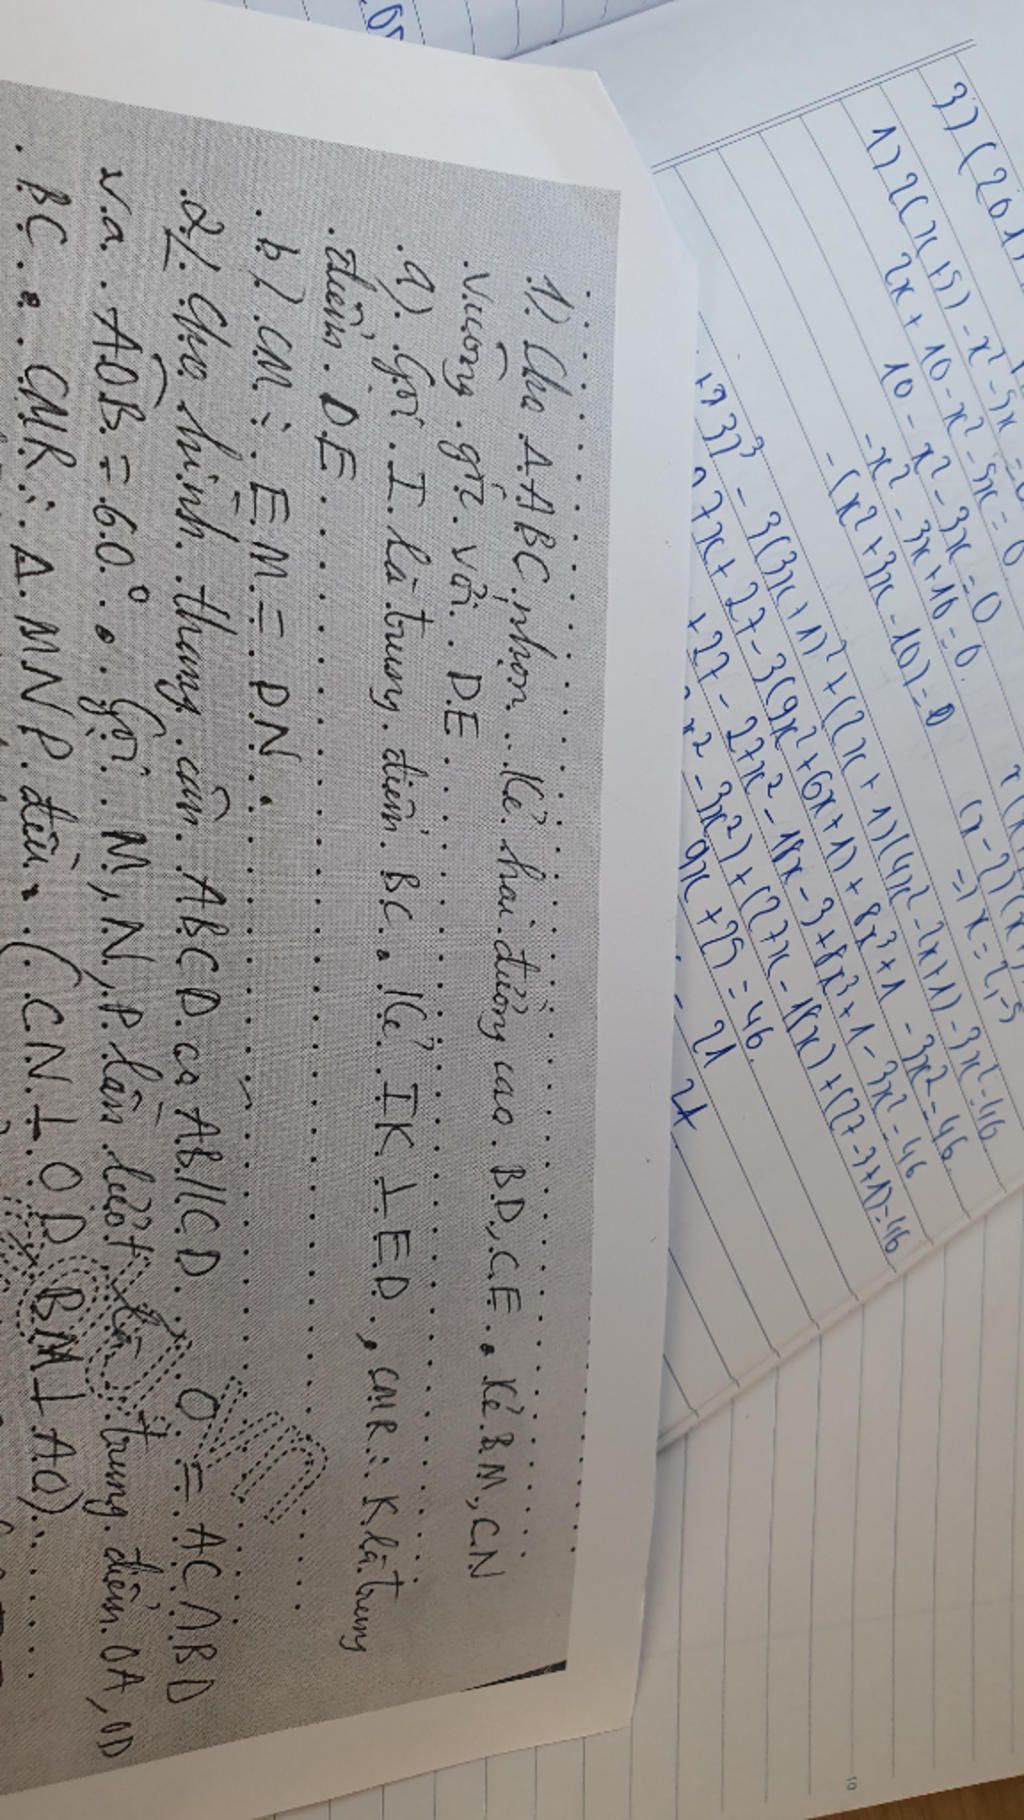 1) Cho Δ ABC nhọn. Kẻ hai đường cao BD, CE. Kẻ BM, CN
vuông góc với DE
a) Gọi I là trung điểm BC. Kẻ IK ⊥ ED, CMR: K là trung
điểm DE
b) CM: EM = DN.
2/ Cho hình thang cân ABCD có AB//CD. O = AC ∩ BD
và AOB = 60°. Gọi M, N, P lần lượt là trung điểm OA, OD
BC. CMR: Δ MNP đều. (CN ⊥ OD BM ⊥ AO)
3) (2x+1)
1) 2(x+5) - x² - 5x = 0
2x + 10 - x² - 5x = 0
10 - x² - 3x = 0
-x² - 3x + 10 = 0
-(x² + 3x - 10) = 0
(x-2)(x+
=> x = 2, -5
+ 3)³ - 3(3x+1)² + (2x+1)(4x² - 2x+1) - 3x² = 46
27x + 27 - 3(9x² + 6x + 1) + 8x³ + 1 - 3x² = 46
+ 27 - 27x² - 18x - 3 + 8x³ + 1 - 3x² = 46
x² - 3x²) + (27x - 18x) + (27-3+1) = 46
9x + 25 = 46
= 21
10